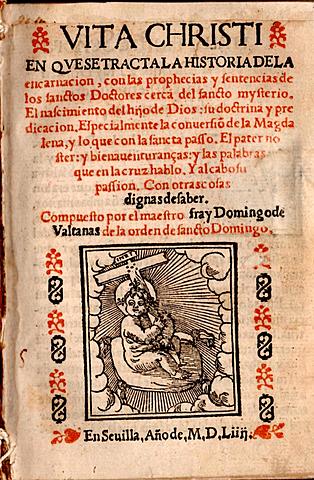 VITA CHRISTI
EN QVE SE TRACTA LA HISTORIA DE LA
encarnacion, con las prophecias y sentencias de
los sanctos Doctores cerca del sancto mysterio.
El nascimiento del hijo de Dios: su doctrina y pre
dicacion, Especialmente la conuersiõ de la Magda
lena, y lo que con la sancta passo. El pater no
ster: y bienauenturanças: y las palabras
que en la cruz hablo. Y al cabo su
passion. Con otras cosas
dignas de saber.
Compuesto por el maestro fray Domingo de
Valtanas de la orden de sancto Domingo.
En Seuilla, Año de, M, D, Liiij.